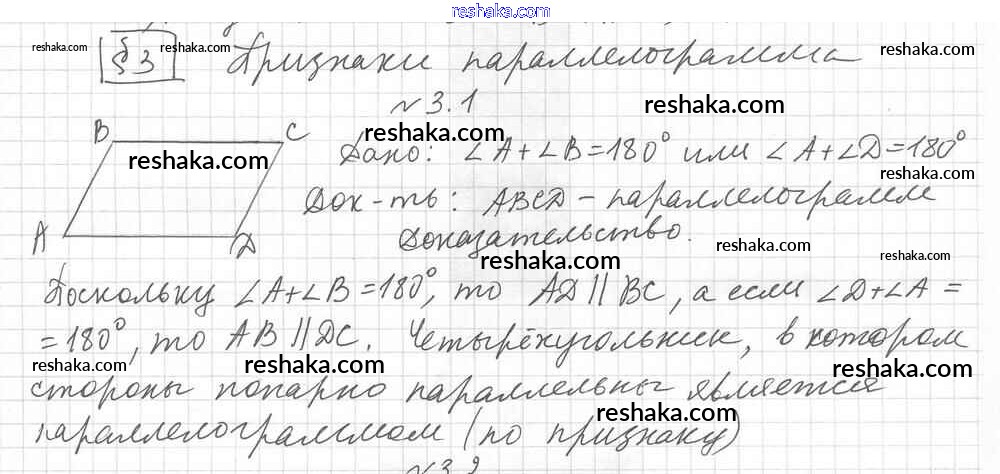 reshaka.com
reshaka.com § 3 reshaka.com Признаки параллелограмма reshaka.com
№ 3.1 reshaka.com
B C reshaka.com reshaka.com
reshaka.com Дано: ∠A+∠B=180° или ∠A+∠D=180°
reshaka.com
Док-ть: ABCD - параллелограмм
A D Доказательство. reshaka.com
reshaka.com
Поскольку ∠A+∠B=180°, то AD || BC, а если ∠D+∠A =
= 180°, то AB || DC. Четырёхугольник, в котором
reshaka.com reshaka.com reshaka.com reshaka.com
стороны попарно параллельны является
reshaka.com
параллелограммом (по признаку)
№3.2